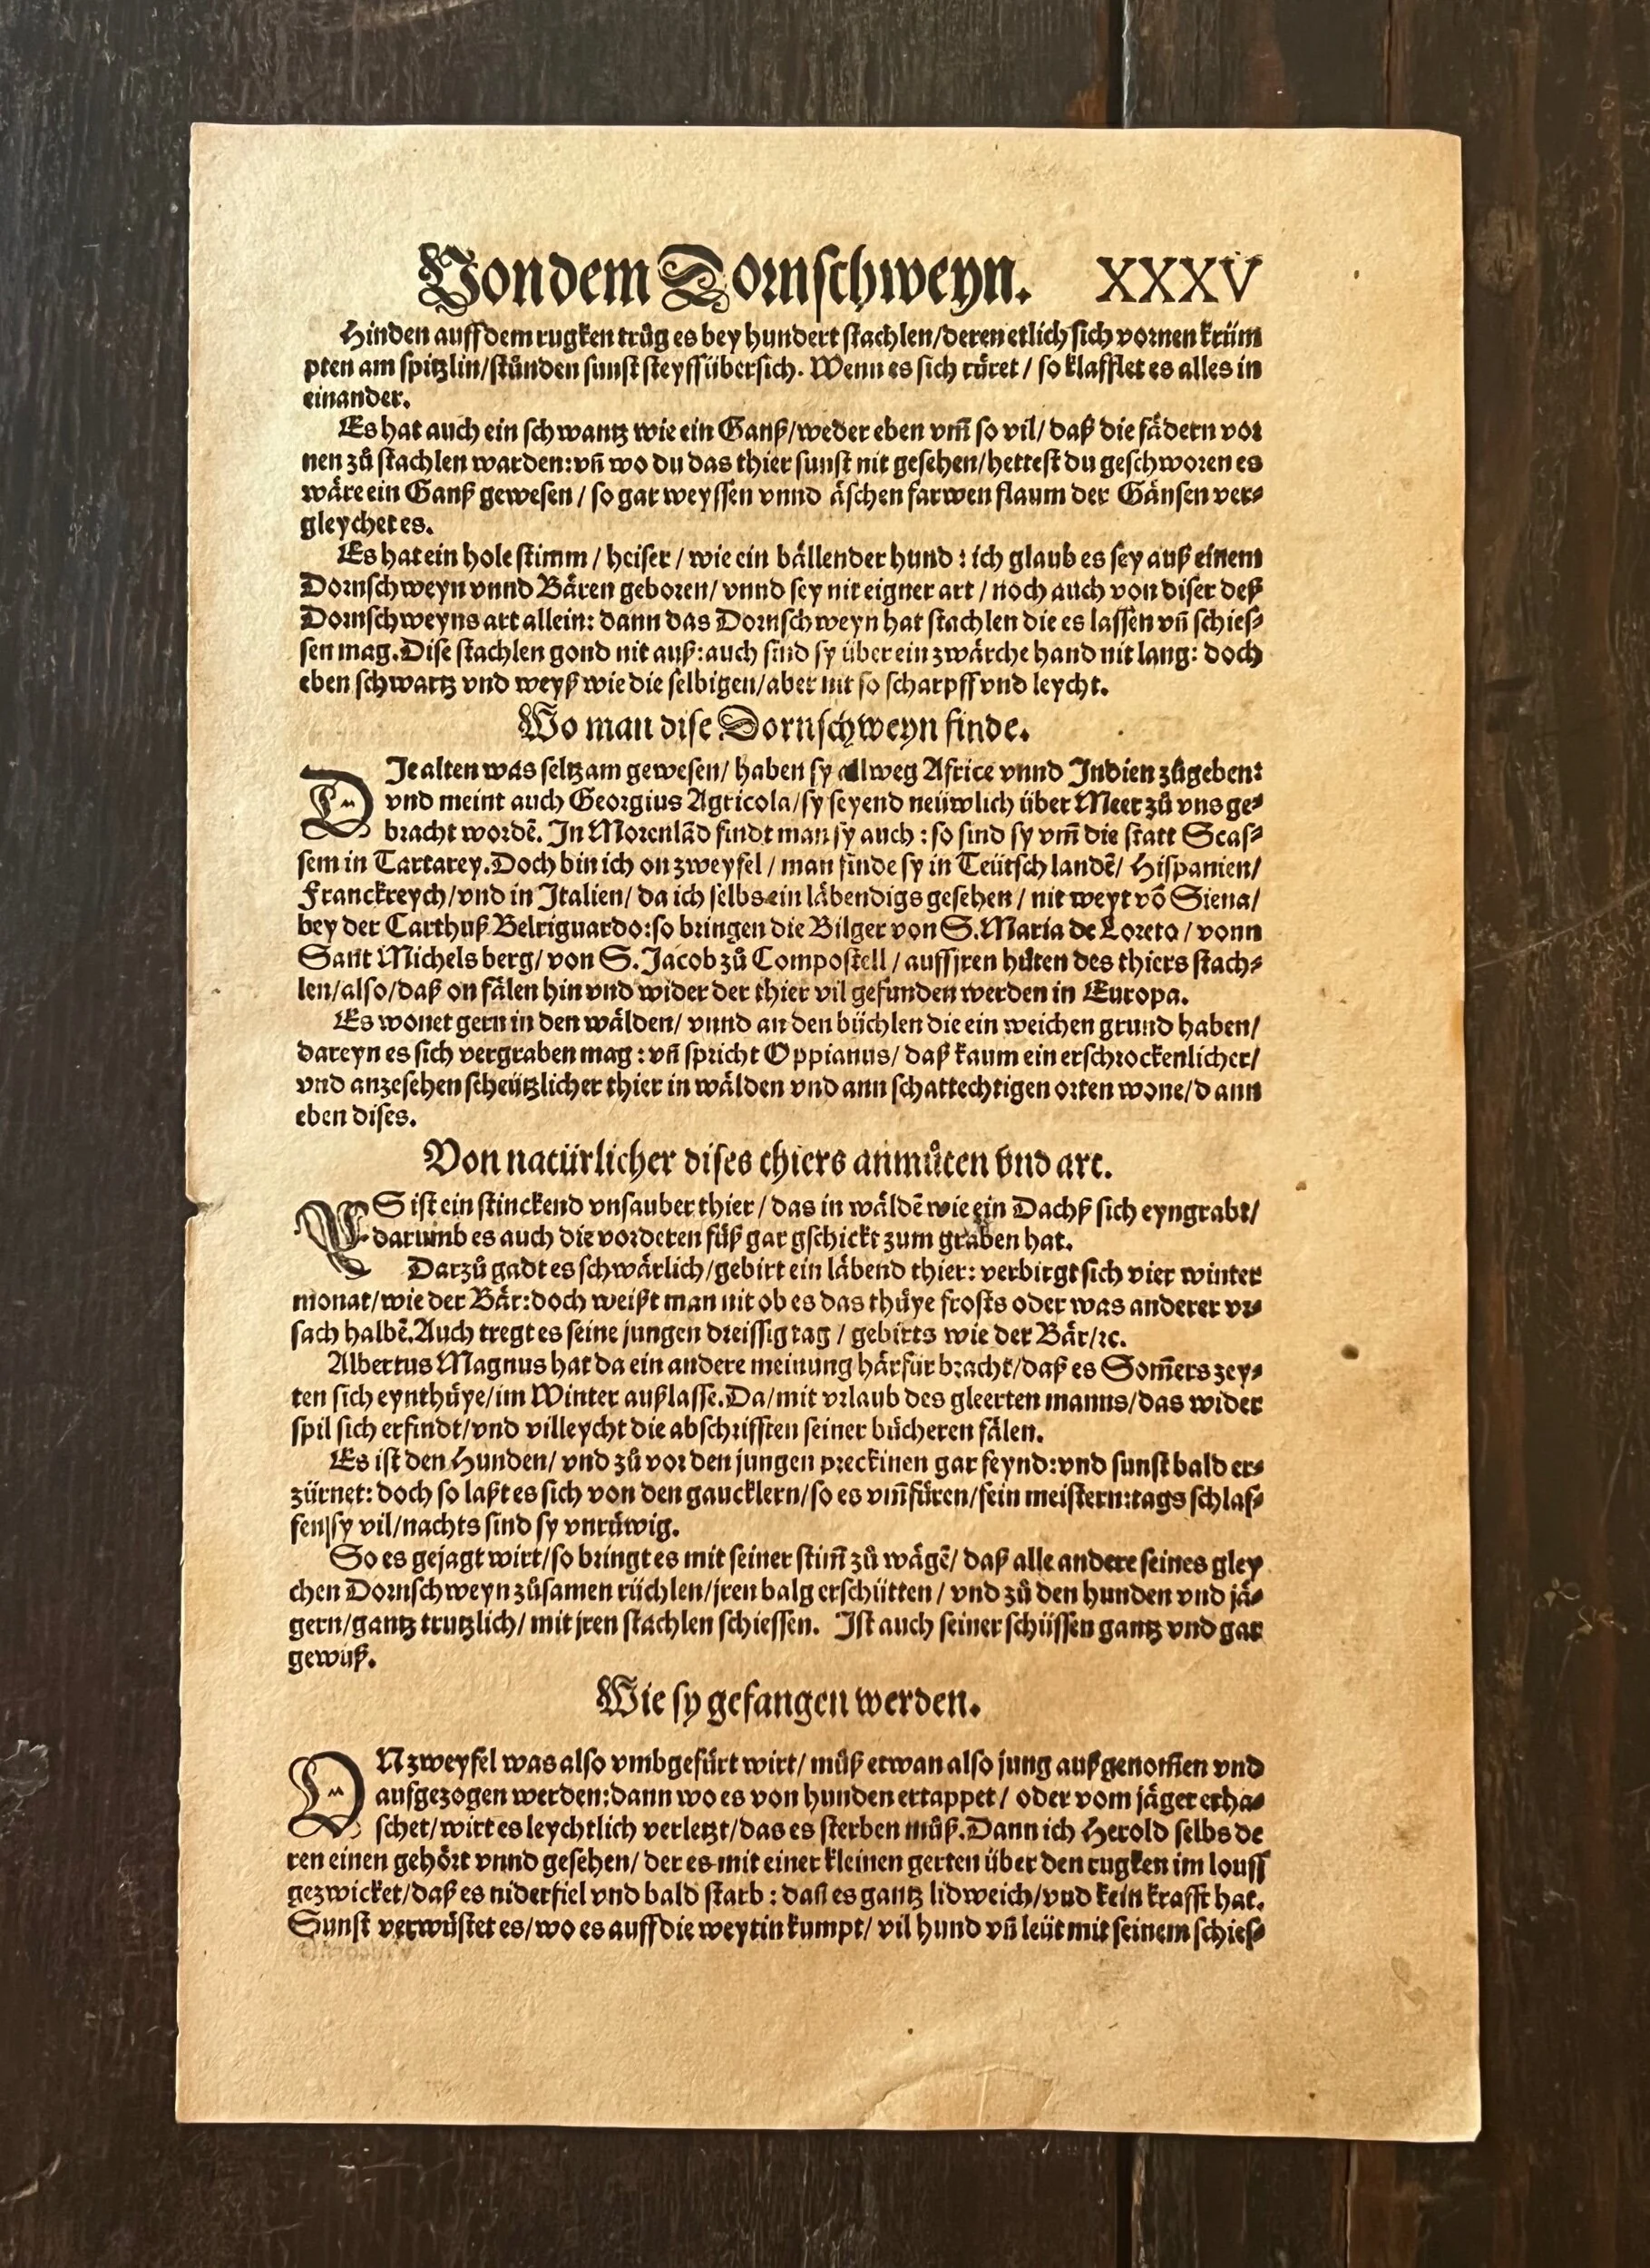 Von dem Dornschweyn. XXXV
Hinden auff dem rugken trůg es bey hundert stachlen/deren etlich sich vornen krüm
pten am spitzlin/stůnden sunst steyff übersich. Wenn es sich rüret / so klafflet es alles in
einander.
Es hat auch ein schwantz wie ein Ganß/weder eben vm̃ so vil/ daß die fädern vor
nen zů stachlen warden: vñ wo du das thier sunst nit gesehen/hettest du geschworen es
wäre ein Ganß gewesen / so gar weyssen vnnd äschen farwen flaum der Gänsen ver⸗
gleychet es.
Es hat ein hole stimm / heiser / wie ein bällender hund : ich glaub es sey auß einem
Dornschweyn vnnd Bären geboren/ vnnd sey nit eigner art / noch auch von diser deß
Dornschweyns art allein: dann das Dornschweyn hat stachlen die es lassen vñ schies⸗
sen mag. Dise stachlen gond nit auß: auch sind sy über ein zwärche hand nit lang: doch
eben schwartz vnd weyß wie die selbigen/aber nit so scharpff vnd leycht.
Wo man dise Dornschweyn finde.
DIe alten was seltzam gewesen/ haben sy allweg Africe vnnd Indien zůgeben:
vnd meint auch Georgius Agricola/sy seyend neüwlich über Meer zů vns ge⸗
bracht wordẽ. In Morenlãd findt man sy auch : so sind sy vm̃ die statt Scas⸗
sem in Tartarey. Doch bin ich on zweyfel / man finde sy in Teütsch landẽ/ Hispanien/
Franckreych/vnd in Italien/ da ich selbs ein läbendigs gesehen / nit weyt võ Siena/
bey der Carthuß Belriguardo: so bringen die Bilger von S. Maria de Loreto / vonn
Sant Michels berg/ von S. Jacob zů Compostell / auff jren hůten des thiers stach⸗
len/also/daß on fälen hin vnd wider der thier vil gefunden werden in Europa.
Es wonet gern in den wälden/ vnnd an den büchlen die ein weichen grund haben/
dareyn es sich vergraben mag : vñ spricht Oppianus/ daß kaum ein erschrockenlicher/
vnd anzesehen scheützlicher thier in wälden vnd ann schattechtigen orten wone/dann
eben dises.
Von natürlicher dises thiers anmůten vnd art.
ES ist ein stinckend vnsauber thier / das in wäldẽ wie ein Dachß sich eyngrabt/
darumb es auch die vorderen füß gar gschickt zum graben hat.
Darzů gadt es schwärlich/gebirt ein läbend thier: verbirgt sich vier winter
monat/wie der Bär: doch weißt man nit ob es das thüye frosts oder was anderer vr⸗
sach halbẽ. Auch tregt es seine jungen dreissig tag / gebirts wie der Bär/ꝛc.
Albertus Magnus hat da ein andere meinung härfür bracht/daß es Som̃ers zey⸗
ten sich eynthüye/im Winter außlasse. Da/mit vrlaub des gleerten manns/das wider
spil sich erfindt/vnd villeycht die abschrifften seiner bücheren fälen.
Es ist den Hunden/ vnd zů vor den jungen preckinen gar feynd: vnd sunst bald er⸗
zürnet: doch so laßt es sich von den gaucklern/so es vm̃füren/fein meistern: tags schlaf⸗
fen sy vil/nachts sind sy vnrüwig.
So es gejagt wirt/so bringt es mit seiner stim̃ zů wägẽ/ daß alle andere seines gley
chen Dornschweyn zůsamen rüchlen/jren balg erschütten / vnd zů den hunden vnd jä⸗
gern/gantz trutzlich/ mit jren stachlen schiessen. Ist auch seiner schüssen gantz vnd gar
gewüß.
Wie sy gefangen werden.
ON zweyfel was also vmbgefürt wirt/ můß etwan also jung außgenom̃en vnd
aufgezogen werden: dann wo es von hunden ertappet / oder vom jäger erha⸗
schet/wirt es leychtlich verletzt/das es sterben můß. Dann ich Herold selbs de
ren einen gehört vnnd gesehen/ der es mit einer kleinen gerten über den rugken im louff
gezwicket/daß es niderfiel vnd bald starb : dañ es gantz lidweich/vnd kein krafft hat.
Sunst verwüstet es/wo es auff die weytin kumpt/ vil hund vñ leüt mit seinem schies⸗